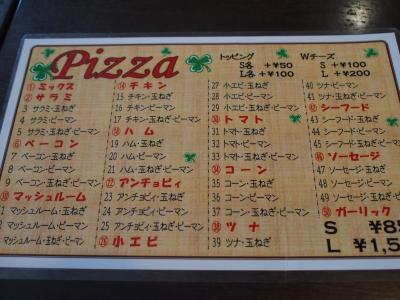 Pizza
トッピング Wチーズ
S各 +¥50 S +¥100
L各 +¥100 L +¥200
① ミックス
② サラミ
3 サラミ・玉ねぎ
4 サラミ・ピーマン
5 サラミ・玉ねぎ・ピーマン
⑥ ベーコン
7 ベーコン・玉ねぎ
8 ベーコン・ピーマン
9 ベーコン・玉ねぎ・ピーマン
⑩ マッシュルーム
マッシュルーム・玉ねぎ
マッシュルーム・ピーマン
マッシュルーム・玉ねぎ・ピーマン
⑭ チキン
15 チキン・玉ねぎ
16 チキン・ピーマン
17 チキン・玉ねぎ・ピーマン
⑱ ハム
19 ハム・玉ねぎ
20 ハム・ピーマン
21 ハム・玉ねぎ・ピーマン
㉒ アンチョビィ
23 アンチョビィ・玉ねぎ
24 アンチョビィ・ピーマン
25 アンチョビィ・玉ねぎ・ピーマン
㉖ 小エビ
27 小エビ・玉ねぎ
28 小エビ・ピーマン
29 小エビ・玉ねぎ・ピーマン
㉚ トマト
31 トマト・玉ねぎ
32 トマト・ピーマン
33 トマト・玉ねぎ・ピーマン
㉞ コーン
35 コーン・玉ねぎ
36 コーン・ピーマン
37 コーン・玉ねぎ・ピーマン
㊳ ツナ
39 ツナ・玉ねぎ
40 ツナ・ピーマン
41 ツナ・玉ねぎ・ピーマン
㊷ シーフード
43 シーフード・玉ねぎ
44 シーフード・ピーマン
45 シーフード・玉ねぎ・ピーマン
㊻ ソーセージ
47 ソーセージ・玉ねぎ
48 ソーセージ・ピーマン
49 ソーセージ・玉ねぎ・ピーマン
㊿ ガーリック
S ¥85
L ¥1,5